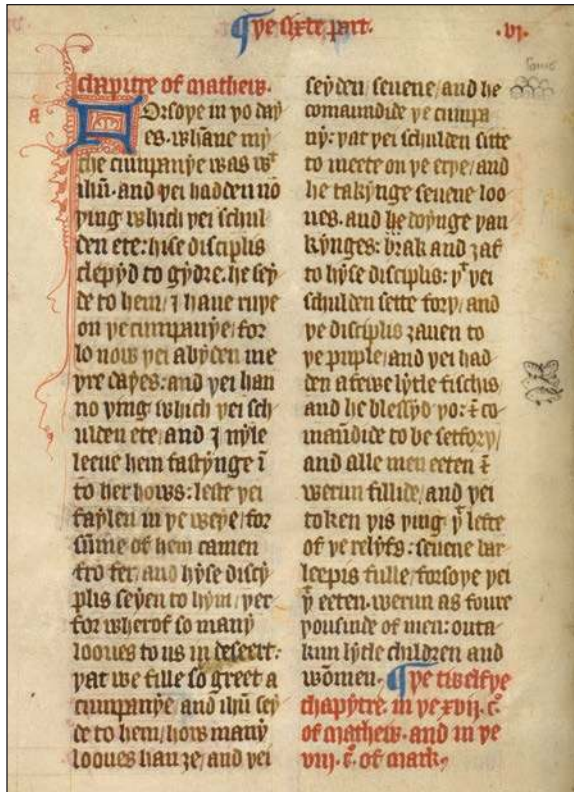 ¶ yᵉ sixte part. .vj.
chapitre of mathew.
a
Forsoye in yo day
es. whane my
che cumpanye was wᵗ
ihū. and yei hadden no
ying which yei schul
den ete: hise disciplis
clepyd to gydre. he sey
de to hem/ I haue ruye
on ye cumpanye/ for
lo now yei abyden me
yre dayes: and yei han
no ying which yei sch
ulden ete/ and I nyle
leeue hem fastynge ī
to her hows: leste yei
faylen in ye weye/ for
sūme of hem camen
fro fer/ and hyse discy
plis seyen to hym/ yer
for wherof so many
looues to us in deseert:
yat we fille so greet a
cumpanye and ihū sey
de to hem/ how many
looues han ȝe/ and yei
seyden/ seuene/ and he
comaundide ye cumpa
ny: yat yei schulden sitte
to meete on ye erye/ and
he takynge seuene loo
ues. and he doynge yan
kynges: brak and ȝaf
to hyse disciplis: yᵗ yei
schulden sette fory/ and
ye disciplis ȝauen to
ye puple/ and yei had
den a fewe lytle fischis
and he blessyd yo: ⁊ co
maūdide to be set fory/
and alle men eeten ⁊
werun fillide/ and yei
token yis ying yᵗ lefte
of ye relyfs: seuene bar
leepis fulle/ forsoye yei
yᵗ eeten. werun as foure
yousinde of men: outa
kun lytle children and
wōmen. ¶ ye twelfye
chapytre. in ye xvij. c̄.
of mathew. and in ye
viij. c̄. of mark,